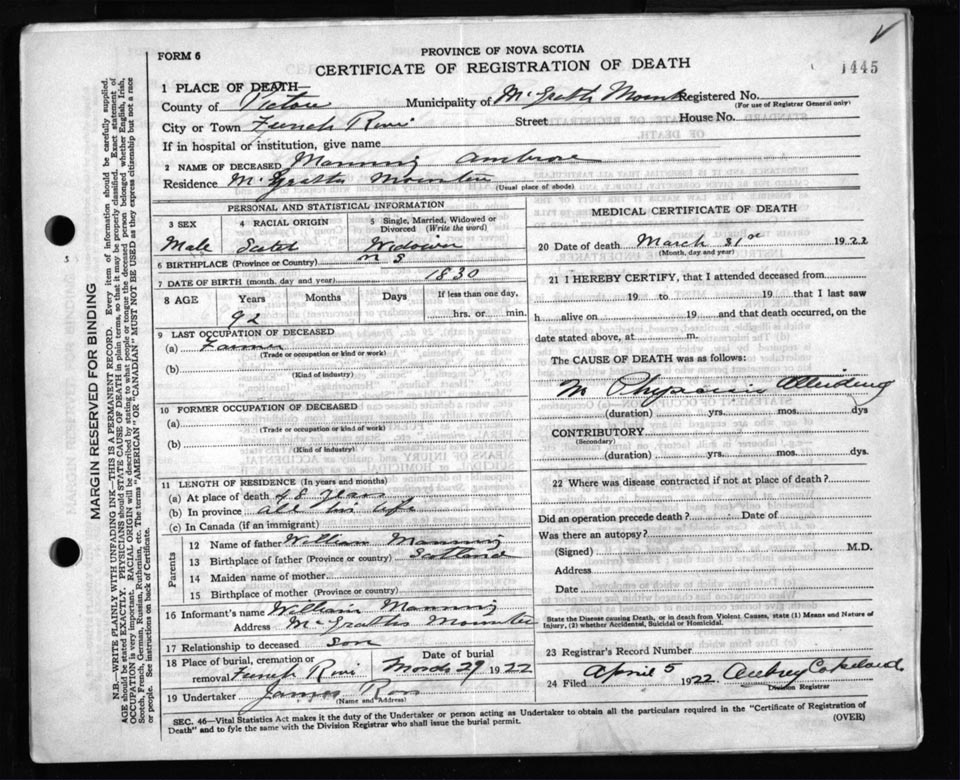 PROVINCE OF NOVA SCOTIA
FORM 6
CERTIFICATE OF REGISTRATION OF DEATH
1445
1 PLACE OF DEATH
County of Pictou Municipality of McGraths Mount Registered No.
(For use of Registrar General only)
City or Town French River Street House No.
If in hospital or institution, give name
2 NAME OF DECEASED Manning Ambrose
Residence McGraths Mountain
(Usual place of abode)
PERSONAL AND STATISTICAL INFORMATION
3 SEX 4 RACIAL ORIGIN 5 Single, Married, Widowed or Divorced (Write the word)
Male Scotch Widower
6 BIRTHPLACE (Province or Country) N S
7 DATE OF BIRTH (month, day and year) 1830
8 AGE Years Months Days If less than one day,
92 hrs. or min.
9 LAST OCCUPATION OF DECEASED
(a) Farmer
(Trade or occupation or kind or work)
(b)
(Kind of industry)
10 FORMER OCCUPATION OF DECEASED
(a)
(Trade or occupation or kind of work)
(b)
(Kind of industry)
11 LENGTH OF RESIDENCE (In years and months)
(a) At place of death years
(b) In province all his life
(c) In Canada (if an immigrant)
Parents
12 Name of father William Manning
13 Birthplace of father (Province or country) Scotland
14 Maiden name of mother
15 Birthplace of mother (Province or country)
16 Informant's name William Manning
Address McGraths Mountain
17 Relationship to deceased son
18 Place of burial, cremation or removal French River
Date of burial
29 1922
19 Undertaker James Ross
(Name and Address)
MEDICAL CERTIFICATE OF DEATH
20 Date of death March 31st 1922
(Month, day and year)
21 I HEREBY CERTIFY, that I attended deceased from
19 to 19 that I last saw
h alive on 19 and that death occurred, on the
date stated above, at m.
The CAUSE OF DEATH was as follows:
Physician Attending
(duration) yrs. mos. dys
CONTRIBUTORY
(Secondary)
(duration) yrs. mos. dys.
22 Where was disease contracted if not at place of death?
Did an operation precede death? Date of
Was there an autopsy?
(Signed) M.D.
Address
Date
State the Disease causing Death, or in death from Violent Causes, state (1) Means and Nature of
Injury, (2) whether Accidental, Suicidal or Homicidal.
23 Registrar's Record Number
24 Filed April 5 1922. Aubrey Copeland
Division Registrar
SEC. 46—Vital Statistics Act makes it the duty of the Undertaker or person acting as Undertaker to obtain all the particulars required in the "Certificate of Registration of
Death" and to fyle the same with the Division Registrar who shall issue the burial permit. (OVER)
MARGIN RESERVED FOR BINDING
N.B.—WRITE PLAINLY WITH UNFADING INK—THIS IS A PERMANENT RECORD. Every item of information should be carefully supplied.
AGE should be stated EXACTLY. PHYSICIANS should STATE CAUSE OF DEATH in plain terms, so that it may be properly classified. Exact statement of
OCCUPATION is very important. RACIAL ORIGIN will be described by stating to what people or tongue the deceased person belonged whether English, Irish,
Scotch, French, German, Russian, Ruthenian, etc. The terms "AMERICAN" OR "CANADIAN" MUST NOT BE USED as they express citizenship but not a race
or people. See instructions on back of Certificate.